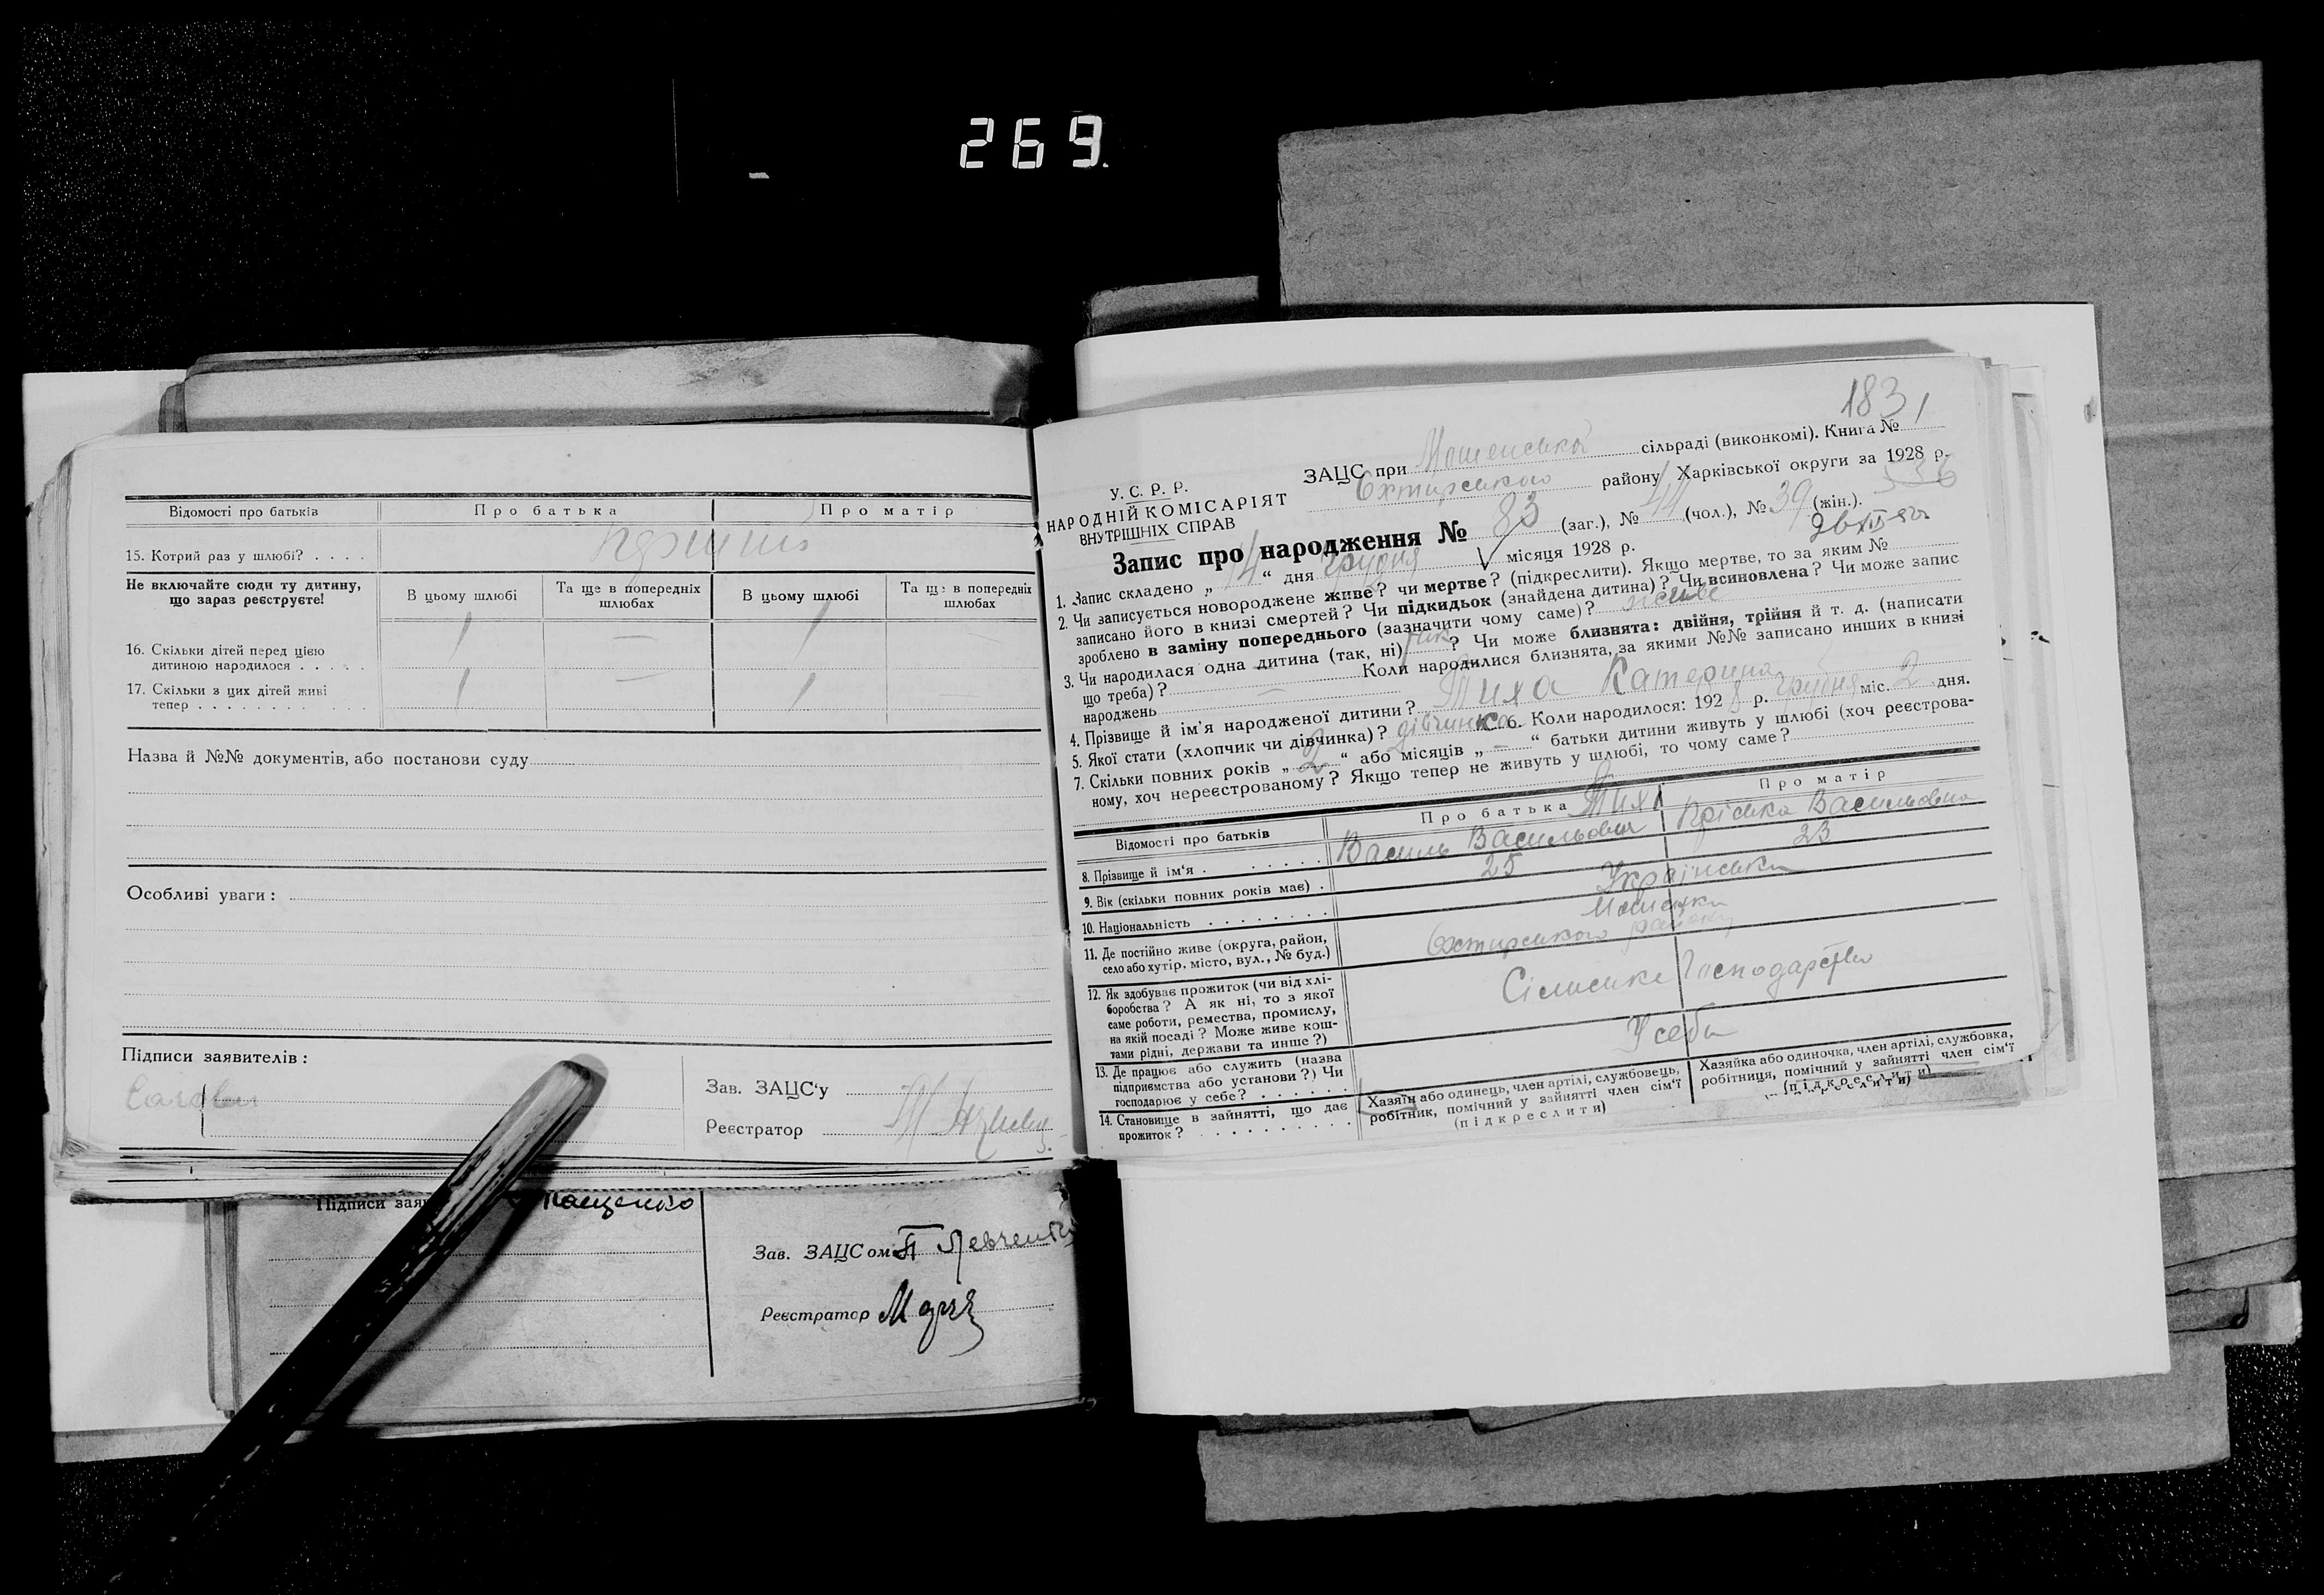 269.
Відомості про батьків
Про батька
Про матір
15. Котрий раз у шлюбі? . . . .
перший
Не включайте сюди ту дитину,
що зараз реєструєте!
В цьому шлюбі
Та ще в попередніх
шлюбах
В цьому шлюбі
Та ще в попередніх
шлюбах
16. Скільки дітей перед цією
дитиною народилося . . . . .
1 — 1
17. Скільки з цих дітей живі
тепер . . . . . . . . . . .
1 — 1 —
Назва й №№ документів, або постанови суду
Особливі уваги:
Підписи заявителів:
Зав. ЗАЦС'у
Реєстратор
Підписи зая
Зав. ЗАЦСом П Левченко
Реєстратор
183
У. С. Р. Р.
НАРОДНІЙ КОМІСАРІЯТ
ВНУТРІШНІХ СПРАВ
ЗАЦС при Мошенській сільраді (виконкомі). Книга № 1
Охтирського району Харківської округи за 1928 р.
536
Запис про народження № 83 (заг.), № 44 (чол.), № 39 (жін.).
1. Запис складено „ 14 “ дня грудня місяця 1928 р.
2. Чи записується новороджене живе? чи мертве? (підкреслити). Якщо мертве, то за яким №
записано його в книзі смертей? Чи підкидьок (знайдена дитина)? Чи всиновлена? Чи може запис
зроблено в заміну попереднього (зазначити чому саме)? живе
3. Чи народилася одна дитина (так, ні) так ? Чи може близнята: двійня, трійня й т. д. (написати
що треба)? — Коли народилися близнята, за якими №№ записано инших в книзі
народжень
4. Прізвище й ім'я народженої дитини? Тиха Катерина
5. Якої стати (хлопчик чи дівчинка)? дівчинка 6. Коли народилося: 1928 р. грудня міс. 2 дня.
7. Скільки повних років „ 2 “ або місяців „ — “ батьки дитини живуть у шлюбі (хоч реєстрова-
ному, хоч нереєстрованому? Якщо тепер не живуть у шлюбі, то чому саме?
Відомості про батьків
Про батька
Про матір
8. Прізвище й ім'я .
Тихі
Василь Васильович
Пріська Васильовна
9. Вік (скільки повних років має) .
25
23
10. Національність . . . . . . . .
Українська
11. Де постійно живе (округа, район,
село або хутір, місто, вул., № буд.)
Охтирського району
12. Як здобуває прожиток (чи від хлі-
боробства? А як ні, то з якої
саме роботи, ремества, промислу,
на якій посаді? Може живе кош-
тами рідні, держави та инше?)
Сільське Господарство
13. Де працює або служить (назва
підприємства або установи?) Чи
господарює у себе? . . . . . .
У себе
14. Становище в зайнятті, що дає
прожиток? . . . . . . . . . .
Хазяїн або одинець, член артілі, службовець,
робітник, помічний у зайнятті член сім'ї
(підкреслити)
Хазяйка або одиночка, член артілі, службовка,
робітниця, помічний у зайнятті член сім'ї
(підкреслити)